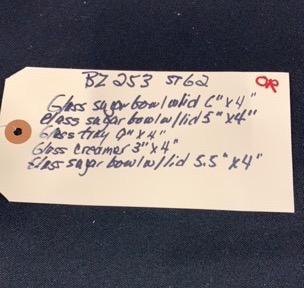 BZ 253 ST62
OR
Glass sugar bowl w/lid 6" x 4"
Glass sugar bowl w/lid 5" x 4"
Glass tray 9" x 4"
Glass creamer 3" x 4"
Glass sugar bowl w/lid 5.5" x 4"